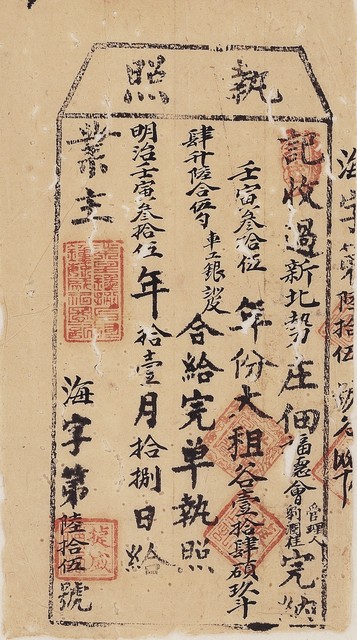 執照
海字第陸拾伍號
記收過新北勢庄佃福惠會管理人完納
壬寅叁拾伍年份大租谷壹拾肆碩玖斗
肆升陸合伍勺車工銀 合給完單執照
明治壬寅叁拾伍年拾壹月拾捌日給
業主
海字第陸拾伍號